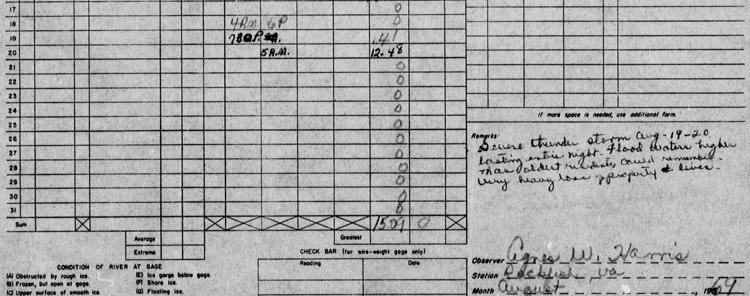 17 0
18 4 P.M. 6P 0
19 .41
20 5 A.M. 12.48
21 0
22 0
23 0
24 0
25 0
26 0
27 0
28 0
29 0
30 0
31 0
Sum 0
Average
Extreme
Greatest
If more space is needed, use additional form.
Remarks
Severe thunder storm Aug-19-20
lasting entire night. Flood waters higher
than oldest residents could remember.
Very heavy loss of property & lives.
CHECK BAR (for wire-weight gage only)
Reading Date
CONDITION OF RIVER AT GAGE
(A) Obstructed by rough ice. (E) Ice gorge below gage.
(B) Frozen, but open at gage. (F) Shore ice.
(C) Upper surface of smooth ice. (G) Floating ice.
Observer Agnes W. Harris
Station Rockfish, Va
Month August, 1969